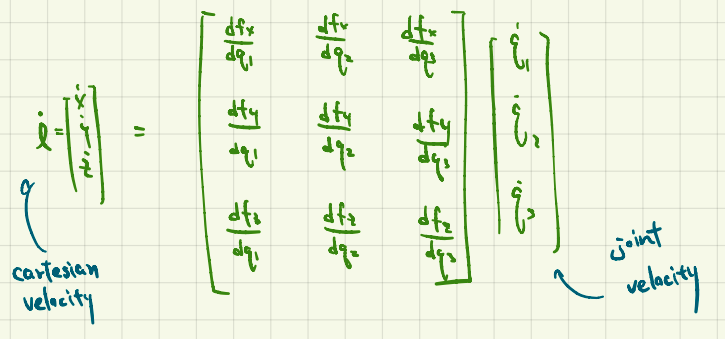 dfx/dq1 dfx/dq2 dfx/dq3 q̇1
ẋ
l̇ = ẏ = dfy/dq1 dfy/dq2 dfy/dq3 q̇2
ż
dfz/dq1 dfz/dq2 dfz/dq3 q̇3
cartesian
velocity
joint
velocity